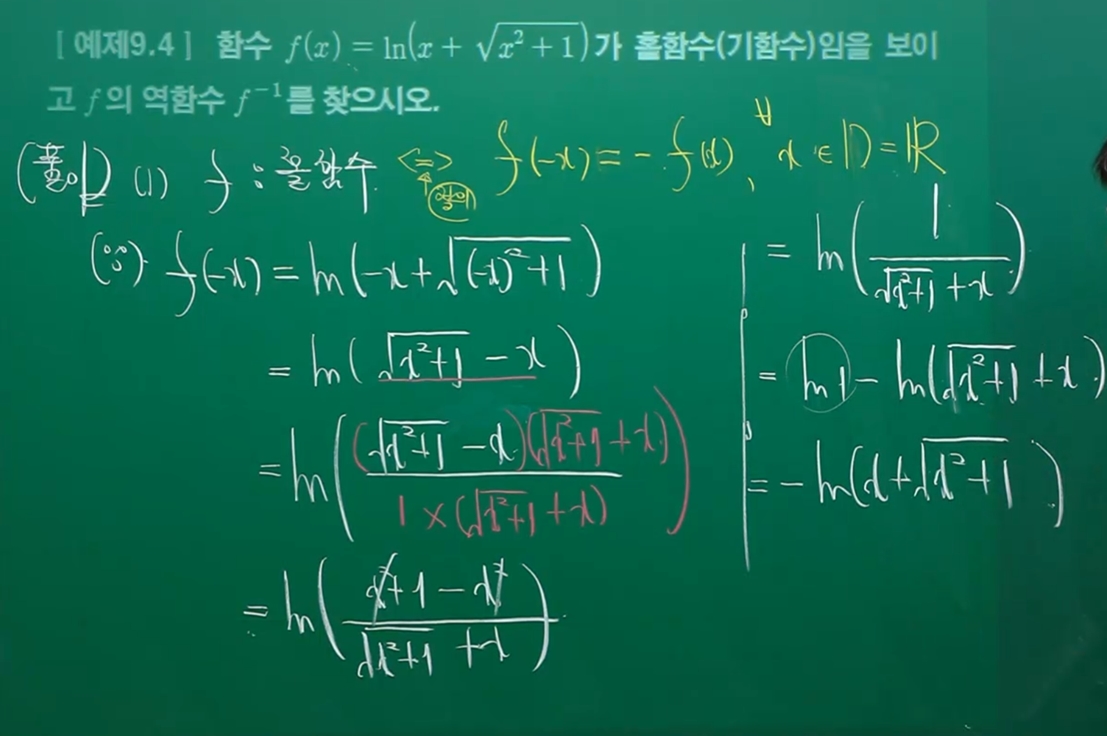 [ 예제9.4 ] 함수 f(x) = ln(x + √(x² + 1))가 홀함수(기함수)임을 보이
고 f의 역함수 f⁻¹를 찾으시오.
(풀이) (1) f : 홀함수 <=> f(-x) = - f(x), ∀x ∈ D = ℝ
↑ 정의
(∵) f(-x) = ln(-x + √((-x)² + 1))
= ln(√(x²+1) - x)
= ln((√(x²+1) - x)(√(x²+1) + x) / 1 × (√(x²+1) + x))
= ln((x²+1 - x²) / (√(x²+1) + x))
= ln(1 / (√(x²+1) + x))
= ln1 - ln(√(x²+1) + x)
= - ln(x + √(x²+1))